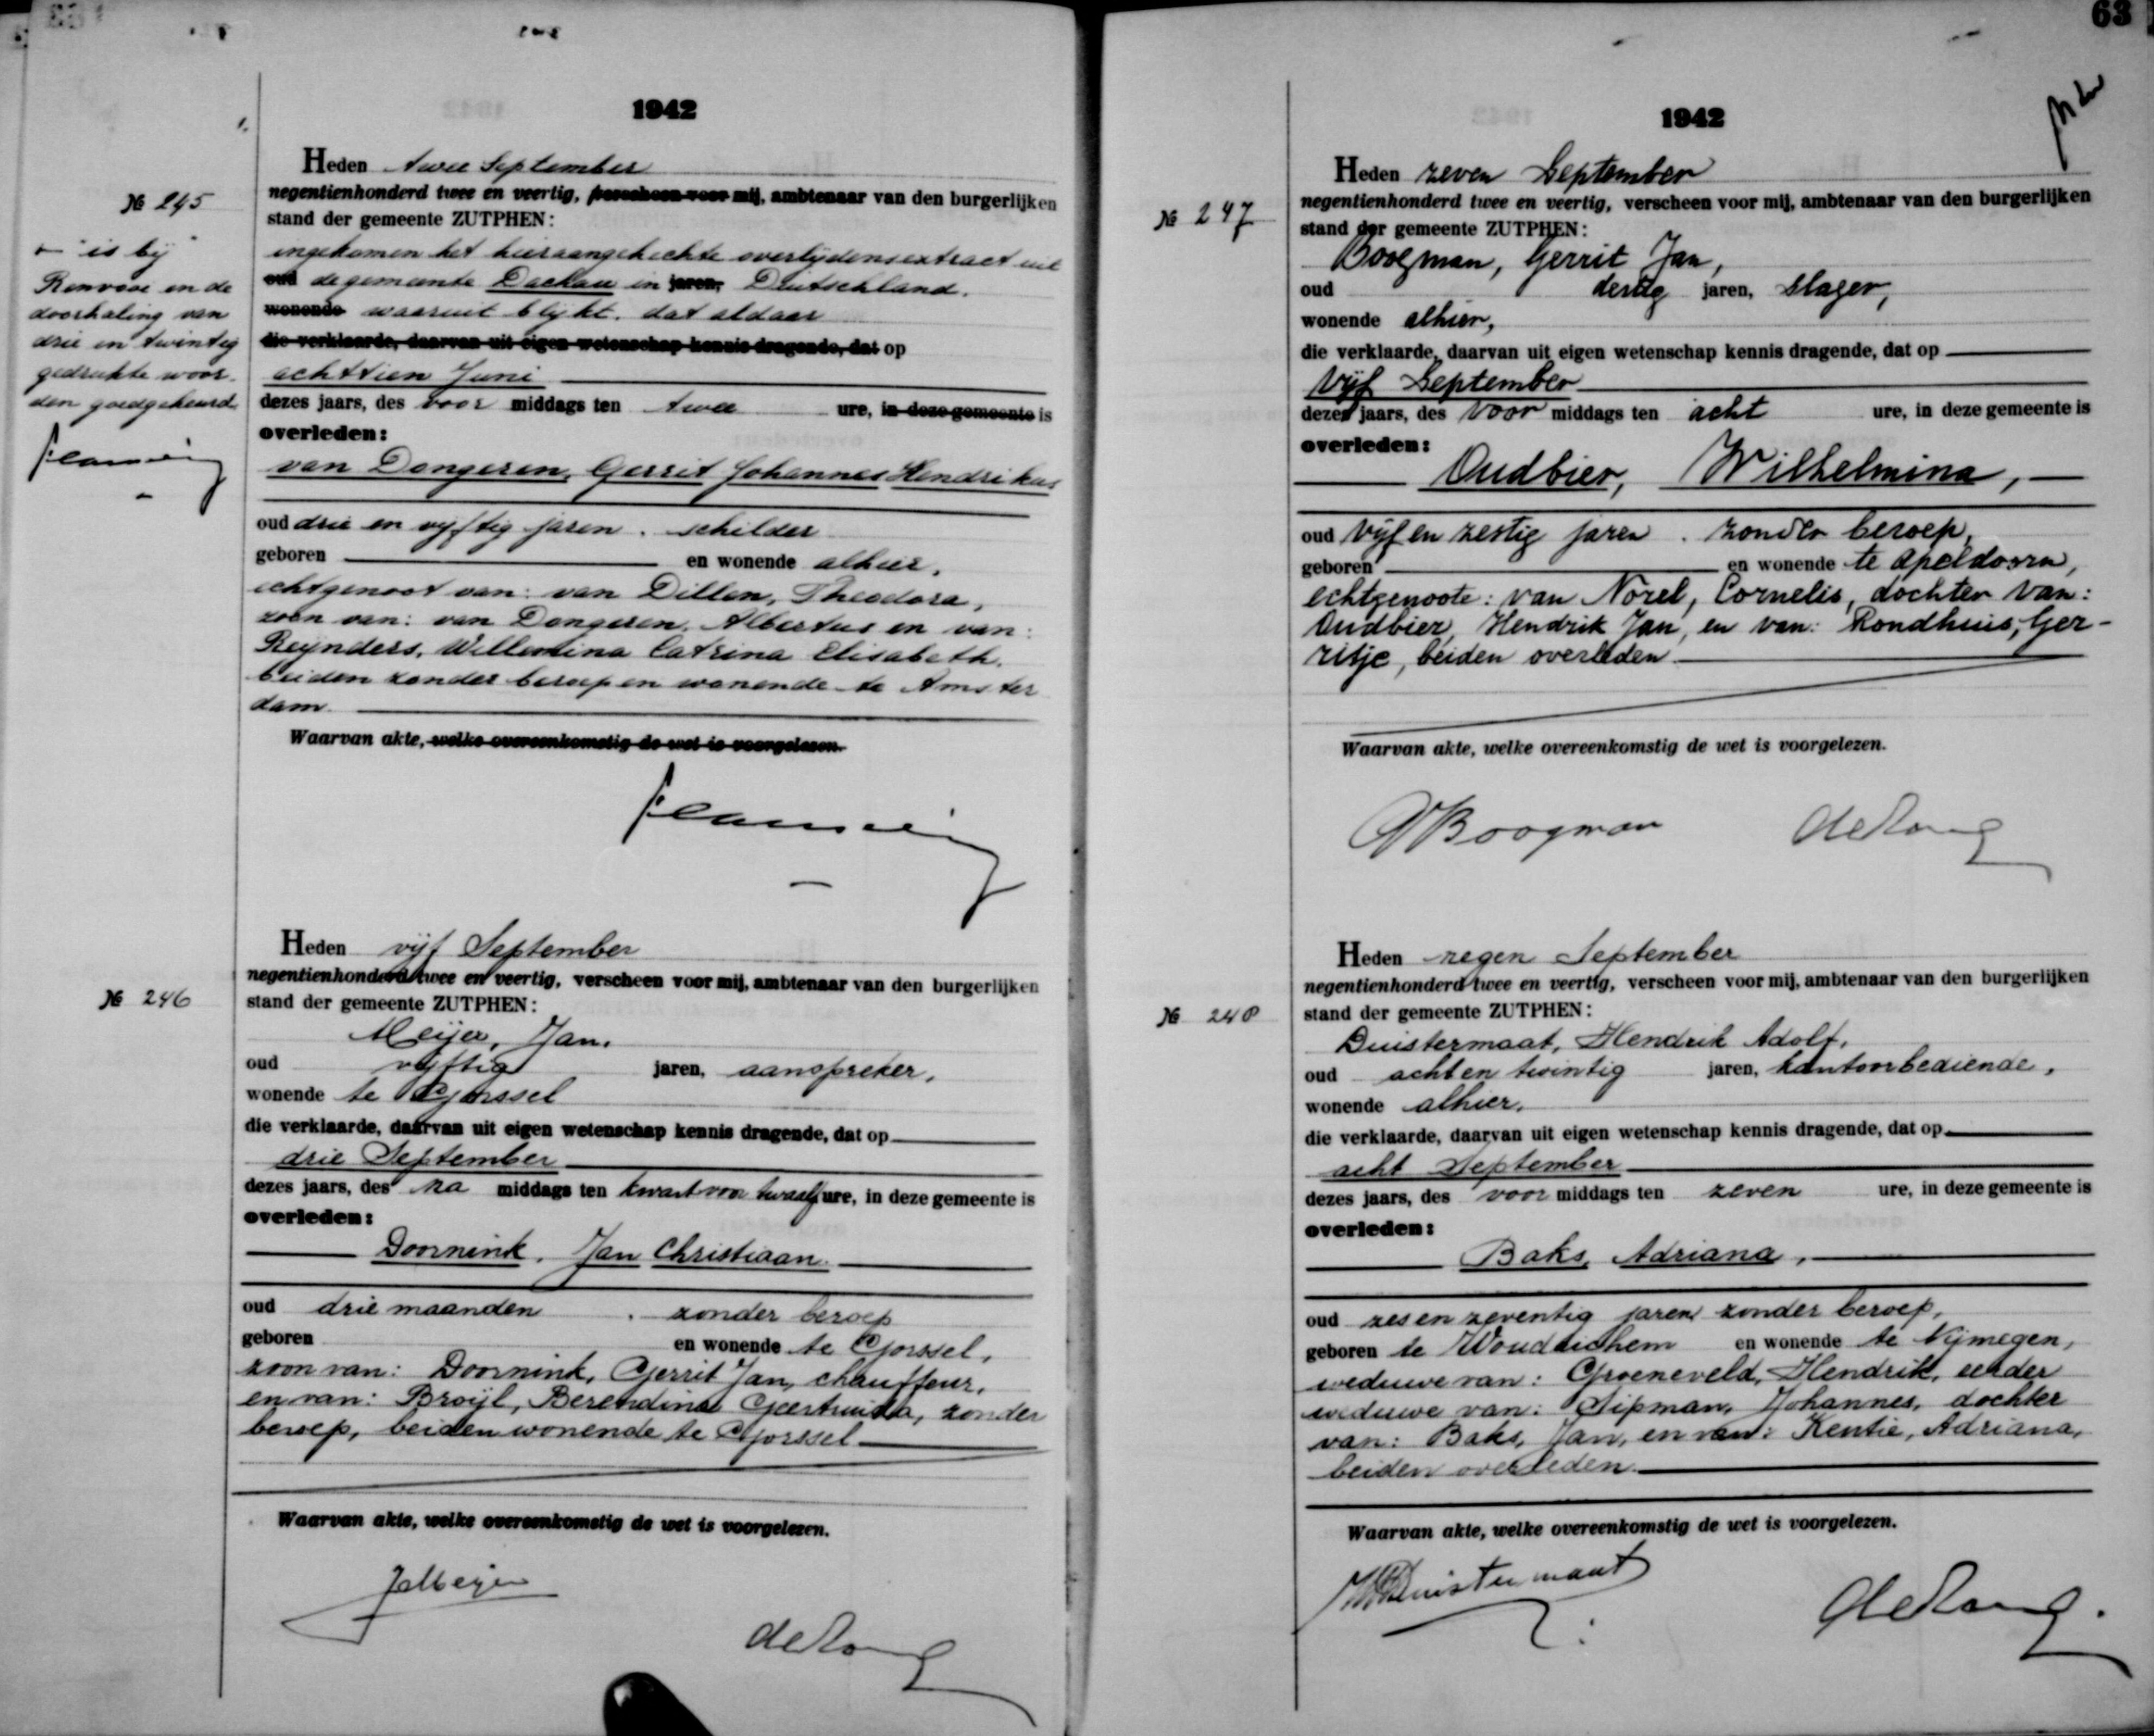 1942
Heden twee September
№ 245
negentienhonderd twee en veertig, verscheen voor mij, ambtenaar van den burgerlijken
stand der gemeente ZUTPHEN:
ingekomen het hieraangehechte overlijdensextract uit
oud de gemeente Dachau in jaren, Duitschland.
wonende waaruit blijkt, dat aldaar
die verklaarde, daarvan uit eigen wetenschap kennis dragende, dat op
achttien Juni
dezes jaars, des voor middags ten twee ure, in deze gemeente is
overleden:
van Dongeren, Gerrit Johannes Hendrikus
oud drie en vijftig jaren, schilder
geboren en wonende alhier,
echtgenoot van: van Dillen, Theodora,
zoon van: van Dongeren, Albertus en van:
Reijnders, Willemina Catrina Elisabeth,
beiden zonder beroep en wonende te Amster
dam.
Waarvan akte, welke overeenkomstig de wet is voorgelezen.
"is bij"
Renvooi en de
doorhaling van
drie en twintig
gedrukte woor-
den goedgekeurd
Heden vijf September
№ 246
negentienhonderd twee en veertig, verscheen voor mij, ambtenaar van den burgerlijken
stand der gemeente ZUTPHEN:
Meijer, Jan,
oud vijftig jaren, aanspreker,
wonende te Gorssel
die verklaarde, daarvan uit eigen wetenschap kennis dragende, dat op
drie September
dezes jaars, des na middags ten kwart voor twaalf ure, in deze gemeente is
overleden:
Doornink, Jan Christiaan.
oud drie maanden, zonder beroep
geboren en wonende te Gorssel,
zoon van: Doornink, Gerrit Jan, chauffeur,
en van: Broijl, Berendina Geertruida, zonder
beroep, beiden wonende te Gorssel
Waarvan akte, welke overeenkomstig de wet is voorgelezen.
JMeijer
de Jong
63
1942
Heden zeven September
№ 247
negentienhonderd twee en veertig, verscheen voor mij, ambtenaar van den burgerlijken
stand der gemeente ZUTPHEN:
Boogman, Gerrit Jan,
oud dertig jaren, slager,
wonende alhier,
die verklaarde, daarvan uit eigen wetenschap kennis dragende, dat op
vijf September
dezes jaars, des voor middags ten acht ure, in deze gemeente is
overleden:
Oudbier, Wilhelmina,
oud vijf en zestig jaren, zonder beroep,
geboren en wonende te Apeldoorn,
echtgenoote: van Norel, Cornelis, dochter van:
Oudbier, Hendrik Jan, en van: Rondhuis, Ger-
ritje, beiden overleden
Waarvan akte, welke overeenkomstig de wet is voorgelezen.
GJBoogman
de Jong
Heden negen September
№ 248
negentienhonderd twee en veertig, verscheen voor mij, ambtenaar van den burgerlijken
stand der gemeente ZUTPHEN:
Duistermaat, Hendrik Adolf,
oud acht en twintig jaren, kantoorbediende,
wonende alhier,
die verklaarde, daarvan uit eigen wetenschap kennis dragende, dat op
acht September
dezes jaars, des voor middags ten zeven ure, in deze gemeente is
overleden:
Baks, Adriana,
oud zes en zeventig jaren zonder beroep,
geboren te Woudrichem en wonende te Nijmegen,
weduwe van: Groeneveld, Hendrik, eerder
weduwe van: Sipman, Johannes, dochter
van: Baks, Jan, en van: Kentie, Adriana,
beiden overleden.
Waarvan akte, welke overeenkomstig de wet is voorgelezen.
HADuistermaat
de Jong.